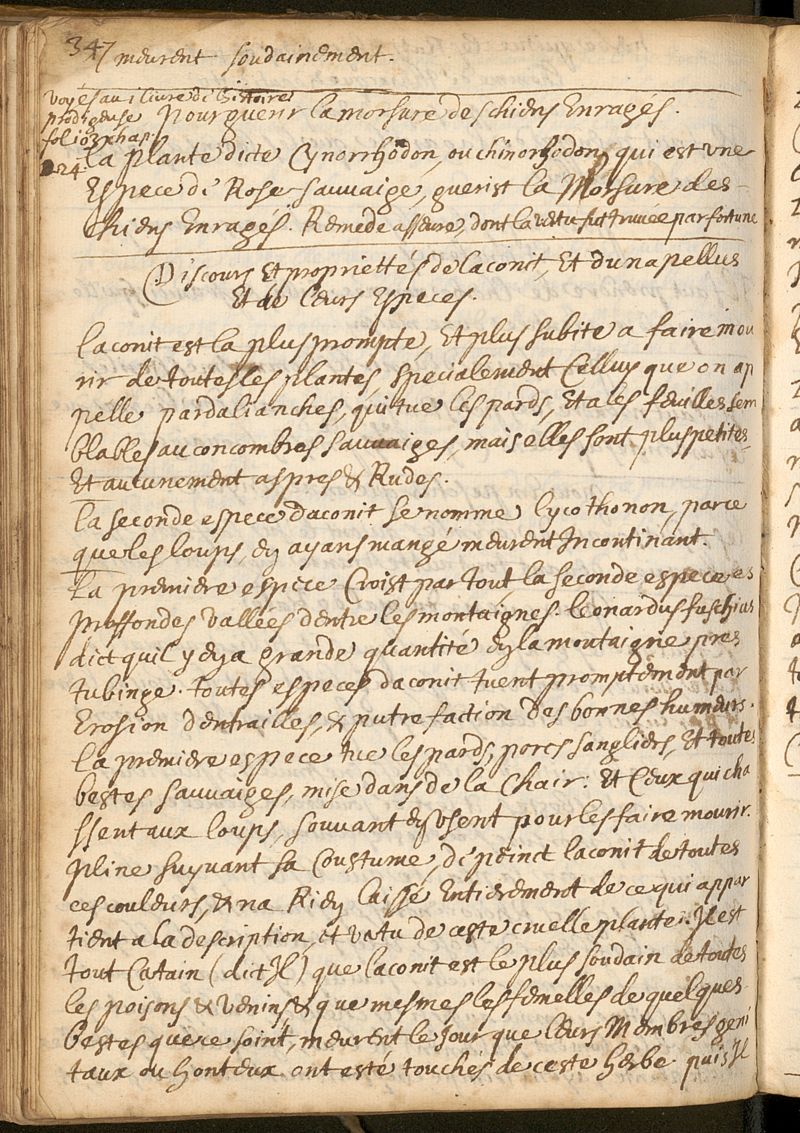 347 meurent soudainement.
voyes au i livre di histoires
prodigeuse
folio
24
Pour guerir la morsure des chiens Enragés.
La plante dicte Cynorrhodon, ou chinorhodon, qui est une
Espece di Rose sauvaige, guerist la Morsure des
chiens Enragés. Remede asseure, dont la vertu fut truvee par fortune
Discours Et propriettés de laconit, Et du napellus
Et de leurs Especes.
Laconit est la plus prompte, Et plus subite a faire mou
rir de toutes les plantes, specialement Celluy que on ap
pelle pardalianches, qui tue les pards, Et a les feuilles sem
blables au concombres sauvaiges, mais elles sont plus petites
Et aucunement aspres & Rudes.
La seconde espece daconit se nomme lycothonon, parce
que les loups, en ayans mangé meurent Incontinant.
La premiere espece Croist par tout, la seconde espece es
proffondes vallées dentre les montaignes. leonardus fuschius
dict quil y en a grande quantité en la montaigne pres
tubinge. toutes especes daconit tuent promptement par
Erosion dentrailles, & putrefaction des bonnes humeurs.
La premiere espece tue les pards, porcs sangliers, Et toutes
bestes sauvaiges, mise dans de la Chair. Et Ceux qui cha
ssent aux loups, souvant en usent pour les faire mourir.
Pline suyvant sa Coustume, di peinct laconit de toutes
ces couleurs, & na Rien laissé Entierement de ce qui appar
tient a la description, et vertu de ceste cruelle plante. Il est
tout Certain (dict Il) que laconit est le plus soudain de toutes
les poisons & venins & que mesmes les femelles de quelques
bestes que ce soint, meurent le Jour que leurs Membres geni
taux ou honteux ont esté touchés de ceste herbe. puis Il